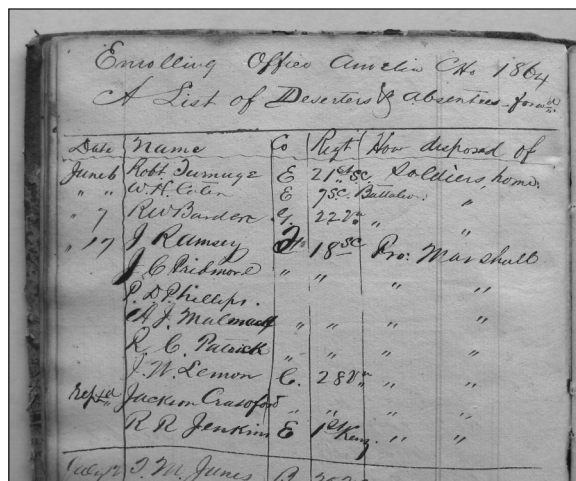 Enrolling Office Amelia C.Ho. 1864
A List of Deserters & Absentees forw'd
Date Name Co Regt How disposed of
June 6 Robt. Turnage E 21st SC Soldiers, home.
" " W. H. Coten E 7 SC. Battalion. "
" 7 R W Bardera G. 22 Va " "
" 17 J Ramsey 18 SC Pro: Marshall
J C Pridmore " " " "
P. D. Phillips. " "
A J. " " " "
R. C. Patrick " " " "
J. W. Lemon C. 28 Va " "
Jackson Crawford " " " "
R R Jenkins E 1st " "
July 12 T. M. Junes